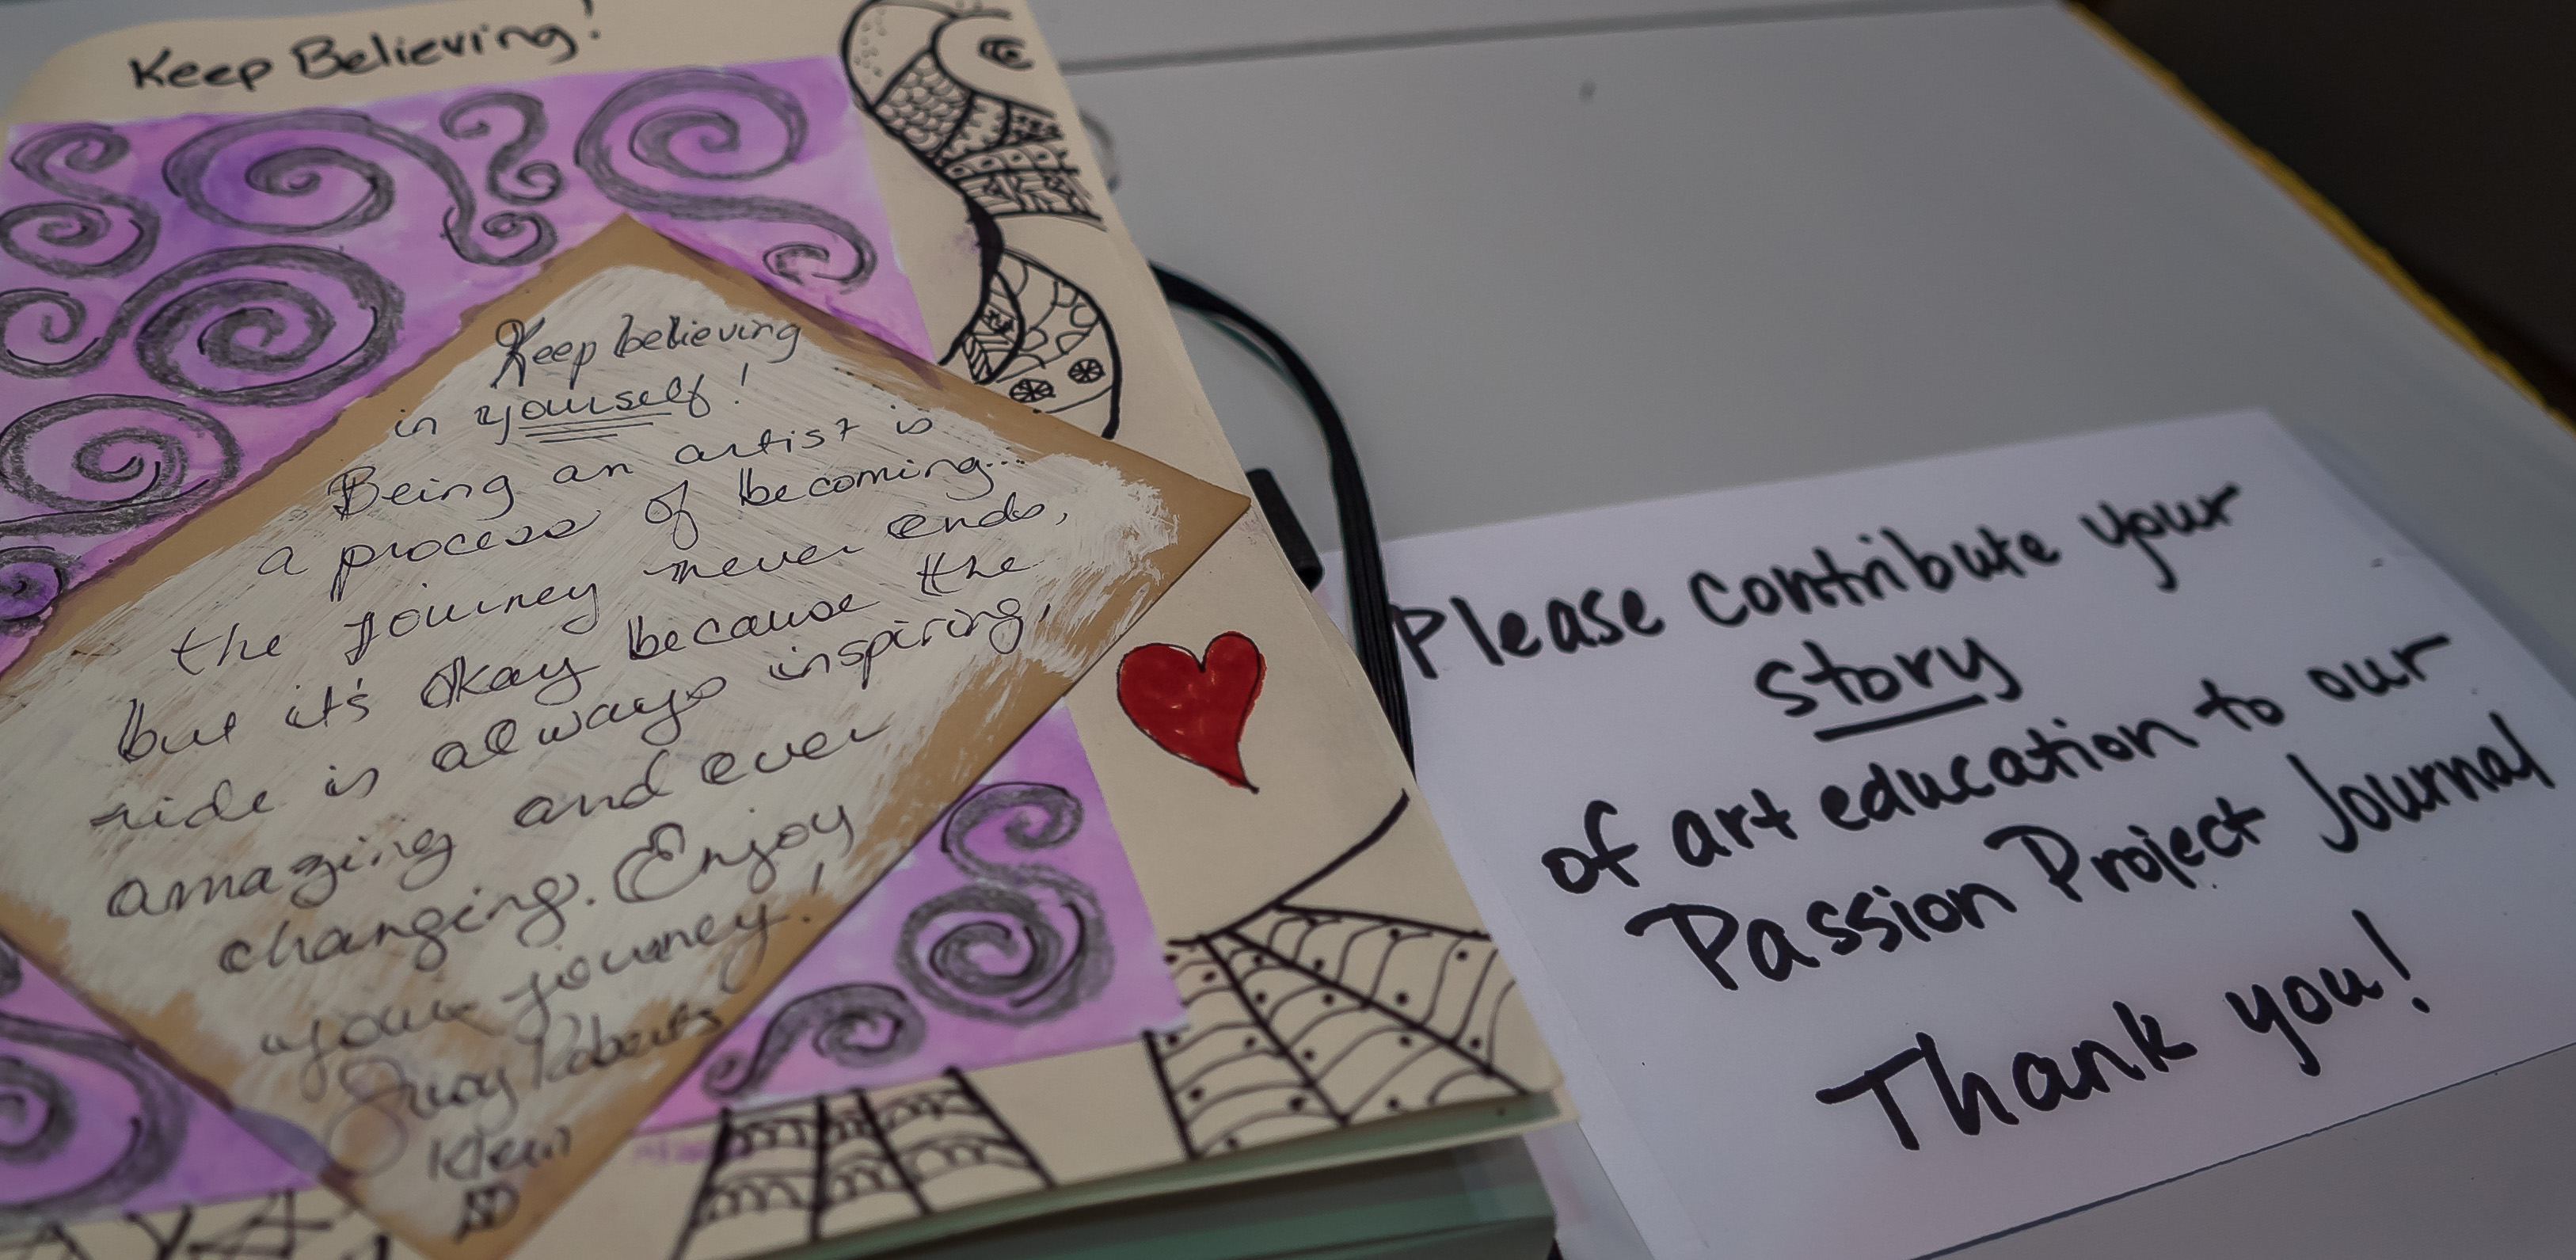 Keep Believing!
Keep believing
in yourself!
Being an artist is
a process of becoming...
the journey never ends,
but it's okay because the
ride is always inspiring,
amazing and ever
changing. Enjoy
your journey!
Roberts
Klein
Please contribute your
story
of art education to our
Passion Project Journal
Thank you!